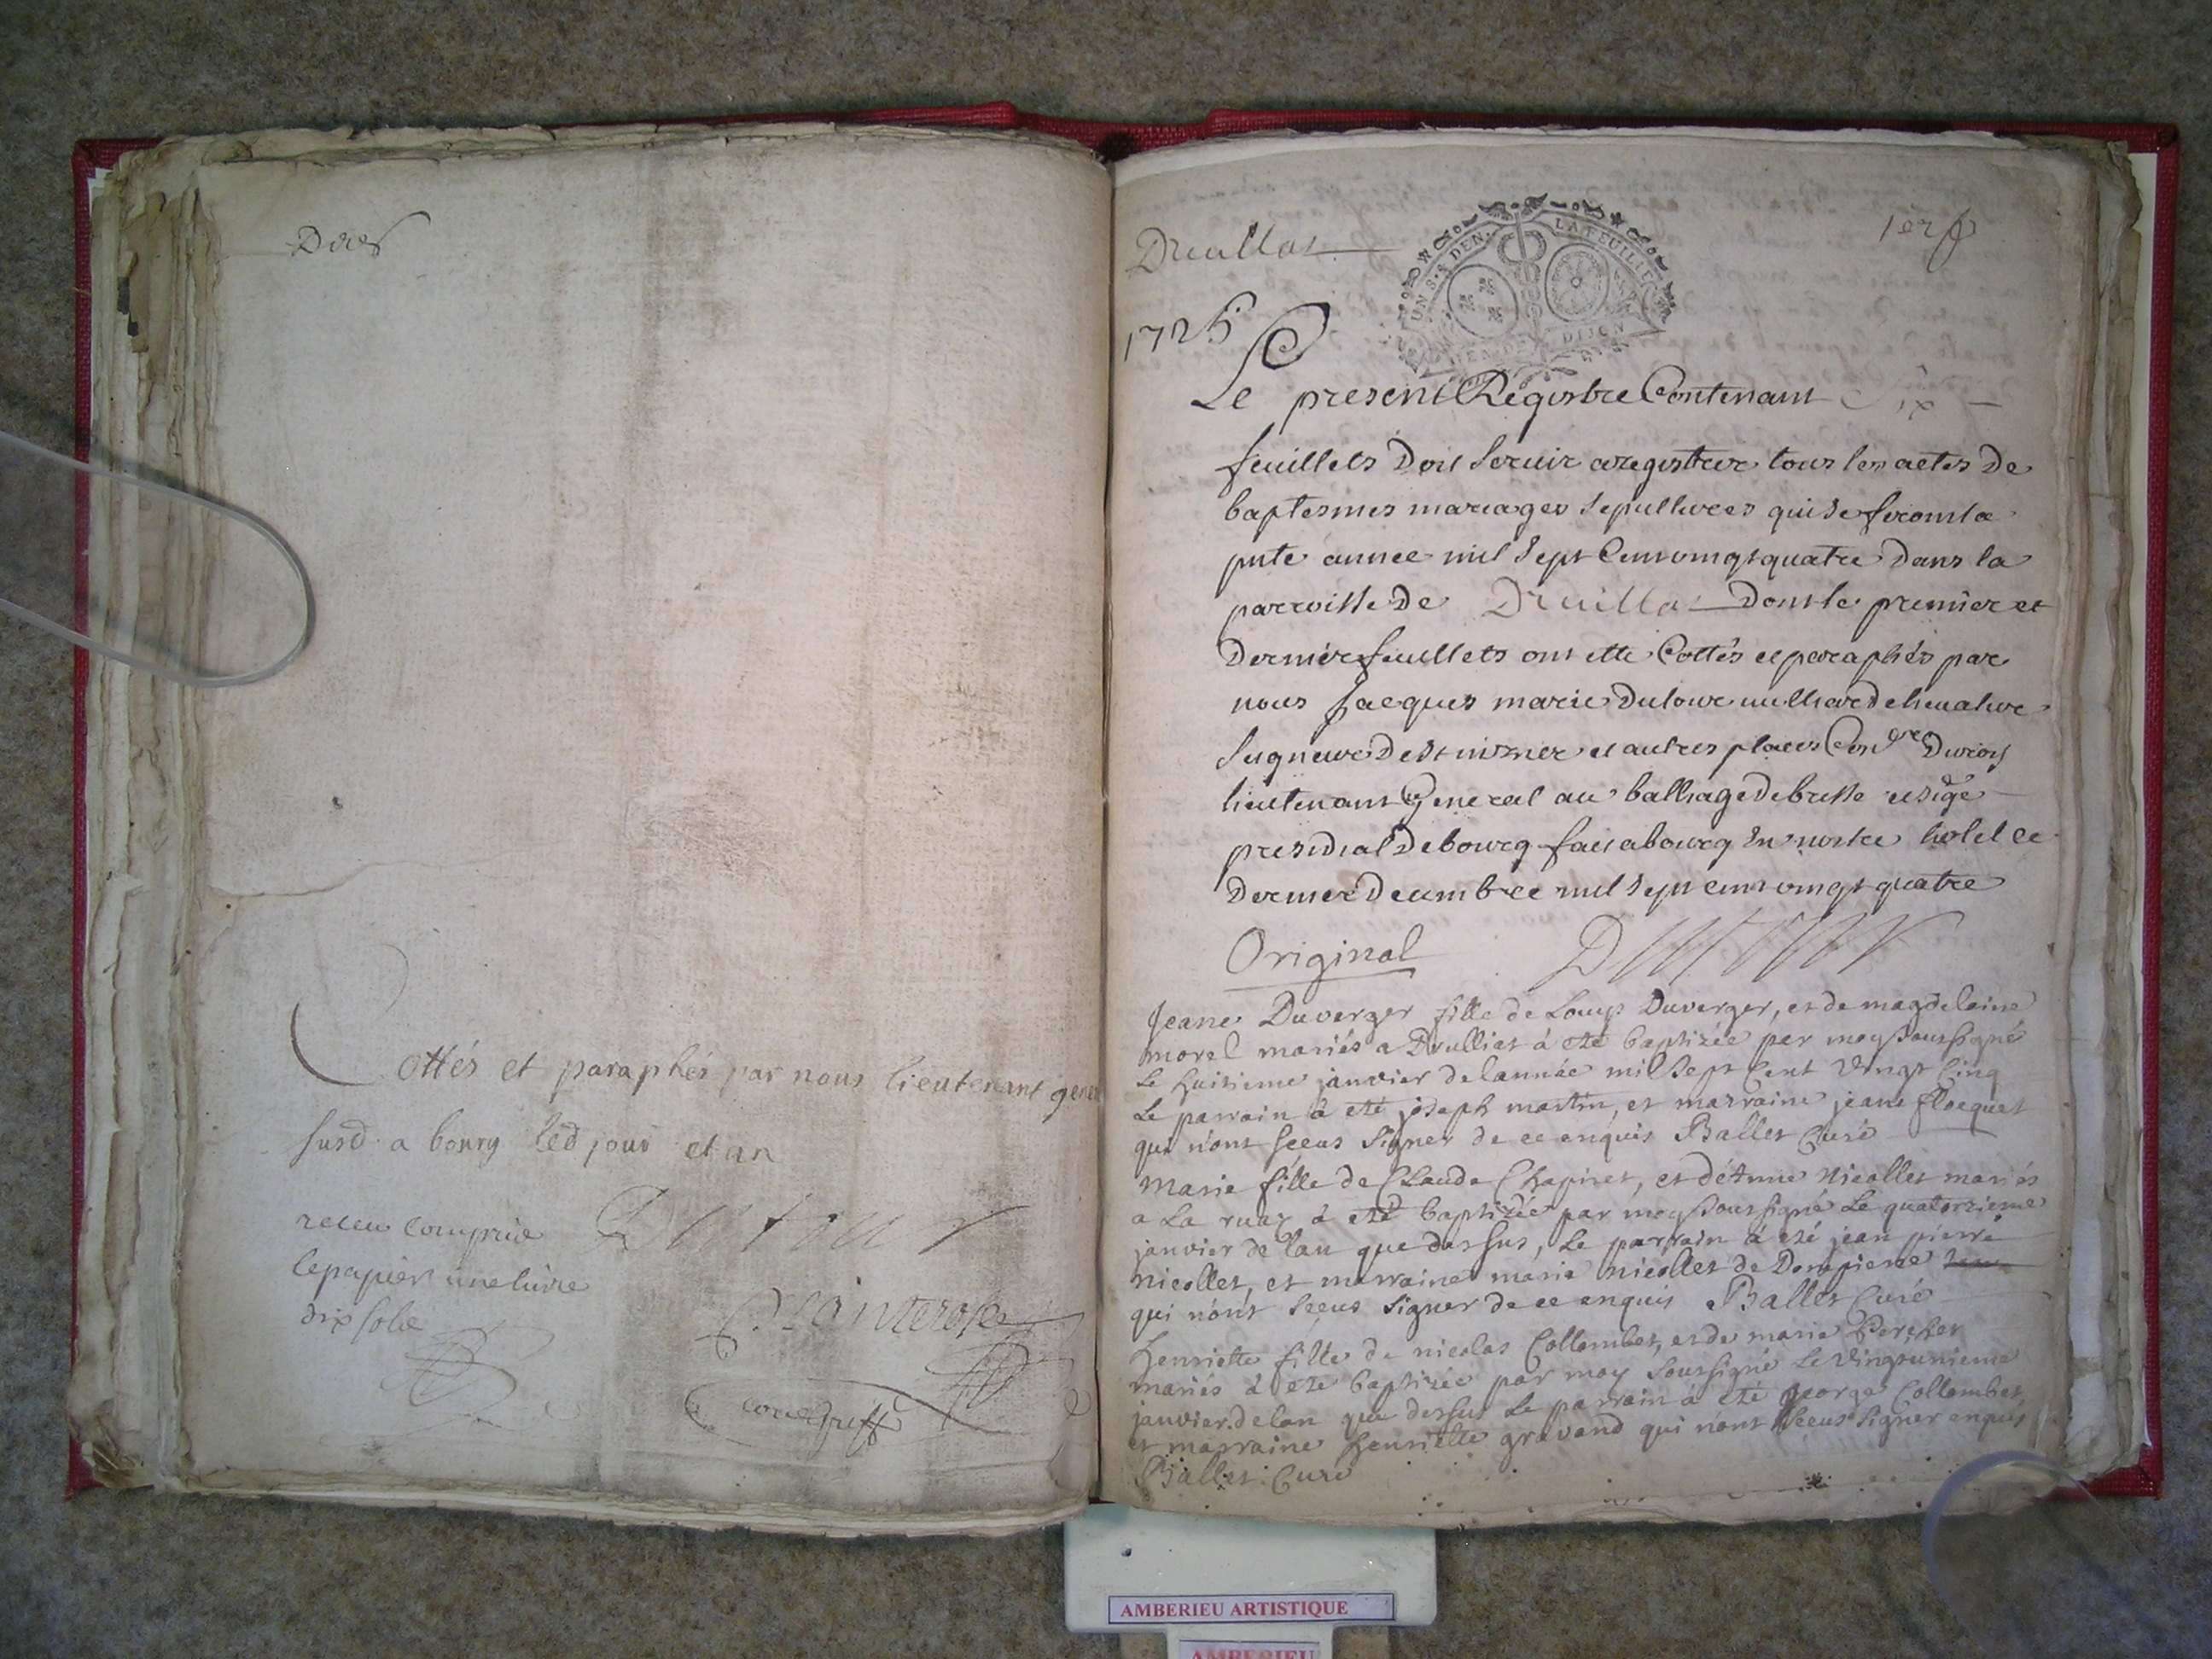 Der f
Cottés et paraphés par nous lieutenant gene
susd a bourg led jour et an
receu compris
le papier une livre
dix sols
Dutour
Druillas
1er f
UN S. 4 DEN. LA FEUILLE
DIJON
1725
Le present Registre Contenant Six
feuillets Doit Servir a registrer tous les actes de
baptesmes mariages sepultures qui se feront la
pnte année mil Sept Cent vingt quatre Dans la
parroisse De Druillas Dont le premier et
Dernier feuillets ont esté Cottés et paraphés par
nous Jacques marie Dutour vulliard chevalier
Seigneur De St nizier et autres places Coner Du roy
lieutenant General au balliage De bresse et siege
presidial De bourg fait a bourg En nostre hotel ce
Dernier Decembre mil Sept cent vingt quatre
Original Dutour
Jeane Duverger fille de Loup Duverger, et de magdelaine
morel mariés a Drullias à eté baptizée par moy soussigné
Le huitieme janvier de lannée mil Sept Cent Vingt Cinq
Le parrain à eté joseph martin, et marraine jeane floquet
qui n'ont sceus Signer de ce enquis Ballet Curé
Marie fille de Claude Chapiret, et d'étienne Nicollet mariés
a La ruaz à eté baptizée par moy soussigné Le quatorzieme
janvier de lan que dessus, Le parrain à eté jean pierre
nicollet, et marraine marie nicollet de Dompierre
qui n'ont sceus Signer de ce enquis Ballet Curé
Henriette fille de nicolas Collombet, et de marie Percher
mariés à eté baptizée par moy soussigné Le Vingtunieme
janvier de lan que dessus Le parrain à eté george Collombet,
et marraine henriette gravand qui nont sceus Signer enquis
Ballet Curé
AMBERIEU ARTISTIQUE
AMBERIEU